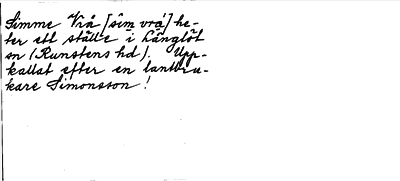 Simme Vrå [sim vrå] he-
ter ett ställe i Långlöt
sn (Runstens hd). Upp-
kallat efter en lantbru-
kare Simonsson!